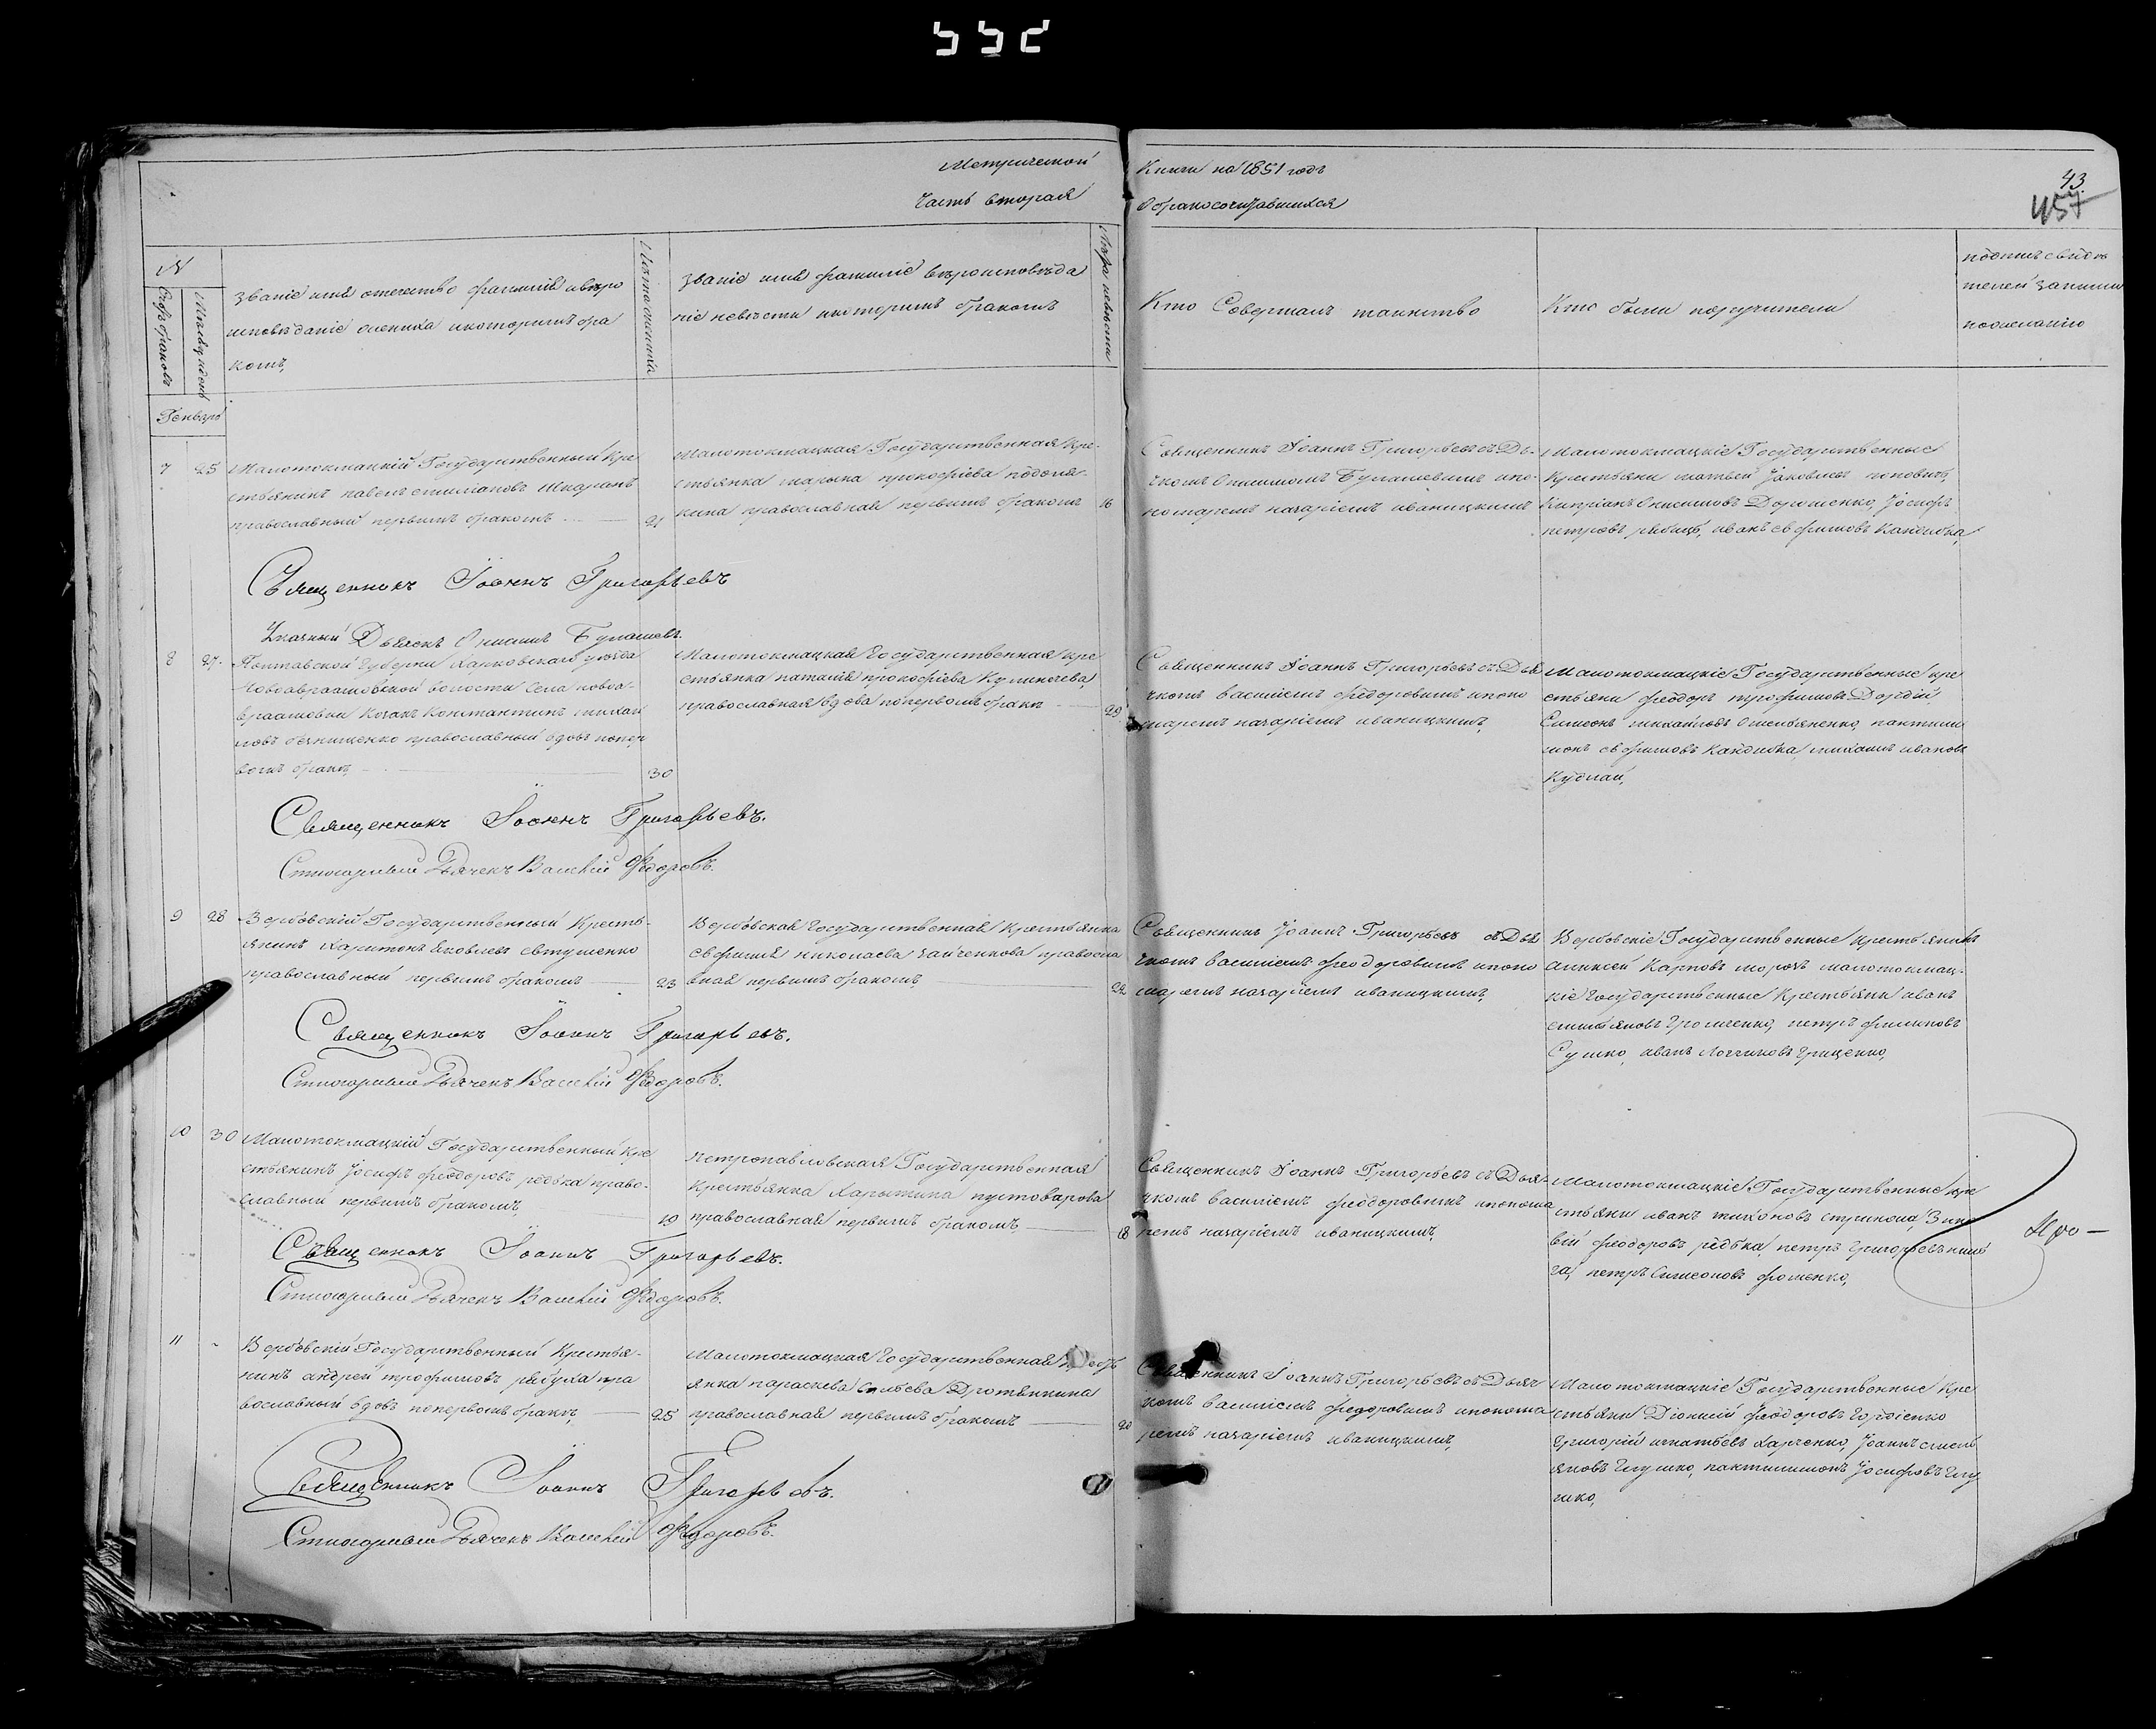 Метрической
Книги на 1851 годъ
Часть вторая
О бракосочитавшихся
43.
457
№
Счетъ браковъ
Мѣсяцъ и день
Званіе имя отечество фамилія и вѣро
исповѣданіе жениха и которымъ бра
комъ,
Лѣта жениха
Званіе имя фамиліе вѣроисповѣда
ніе невѣсты и которымъ бракомъ
Лѣта невѣсты
Кто Совершалъ таинство
Кто были поручители
подпись свидѣ
телей записи
по желанію
Генваря
7 25
Малотокмацкій Государственный Кре
стьянинъ павелъ
православный первымъ бракомъ
21
Малотокмацкая Государственная Кре-
стьянка марьяна прокофіева
православная первымъ бракомъ
16
Священникъ Іоаннъ Григорьевъ съ Дья-
чкомъ Онисимомъ и по-
номаремъ назаріемъ иваницкимъ
Малотокмацкіе Государственные
Крестьяни матвей Іаковлевъ поповичъ,
Кипріанъ Онисимовъ Дорошенко, Іосифъ
петровъ иванъ ефимовъ Кандиба,
Священникъ Іоаннъ Григорьевъ
Дьячекъ Онисимъ
8 27.
Полтавской Губерни Харковскаго уѣзда
Новоавраамовской волости Села новоа-
враамовки Козакъ Константинъ михаи
ловъ православный вдовъ попер
вомъ бракѣ,
30
Малотокмацкая Государственная кре
стьянка наталія прокофіева
православная вдова по первомъ бракѣ
29
Священникъ Іоаннъ Григорьевъ съ Дья
чкомъ василіемъ федоровымъ и поно
маремъ назаріемъ иваницкимъ,
Малотокмацкіе Государственные кре
стьяни феодоръ трофимовъ
Симеонъ михайловъ Омельяненко, пантили
монъ ефимовъ Кандиба, михаилъ ивановъ
Кудлай,
Священникъ Іоаннъ Григорьевъ.
Стихарный Дьячекъ Василій Федоровъ.
9 28
Вербовскій Государственный Кресть-
янинъ Харитонъ Яковлевъ евтушенко
православный первымъ бракомъ
23
Вербовская Государственная Крестьянка
ефимія николаева зайченкова правосла
вная первымъ бракомъ,
22
Священникъ Іоаннъ Григорьевъ съ Дья
чкомъ василіемъ феодоровымъ и поно
маремъ назаріемъ иваницкимъ,
Вербовскіе Государственные Крестьянинъ
алексей Карповъ морозъ малотокмац-
кіе Государственные Крестьяни иванъ
петръ филиповъ
Сушко, иванъ Логгиновъ грищенко,
Священникъ Іоаннъ Григорьевъ.
Стихарный Дьячекъ Василій Федоровъ.
10 30
Малотокмацкій Государственный Кре
стьянинъ Іосифъ феодоровъ редька право-
славный первымъ бракомъ,
19
петропавловская Государственная
Крестьянка Харытина пустоварова
православная первымъ бракомъ,
18
Священникъ Іоаннъ Григорьевъ съ Дья-
чкомъ василіемъ феодоровымъ и понома
ремъ назаріемъ иваницкимъ,
Малотокмацкіе Государственные кре
стьяни иванъ тихоновъ Зино
вій феодоровъ редька, петръ григорьевъ книш
га, петръ Симеоновъ фоменко,
Священникъ Іоаннъ Григорьевъ.
Стихарный Дьячекъ Василій Федоровъ.
11
Вербовскій Государственный Крестья-
нинъ андрей трофимовъ рябуха пра
вославный вдовъ по первомъ бракѣ,
25
Малотокмацкая Государственная
янка параскева
православная первымъ бракомъ
20
Священникъ Іоаннъ Григорьевъ съ Дьяч
комъ василіемъ федоровымъ и понома
ремъ назаріемъ иваницкимъ,
Малотокмацкіе Государственные Кре
стьяни Діонисій феодоровъ гордіенко
григорій игнатьевъ харченко, Іоаннъ емель
яновъ глушко, пантилимонъ Іосифовъ глу
шко,
Священникъ Іоаннъ Григорьевъ.
Стихарный Дьячекъ Василій Федоровъ.